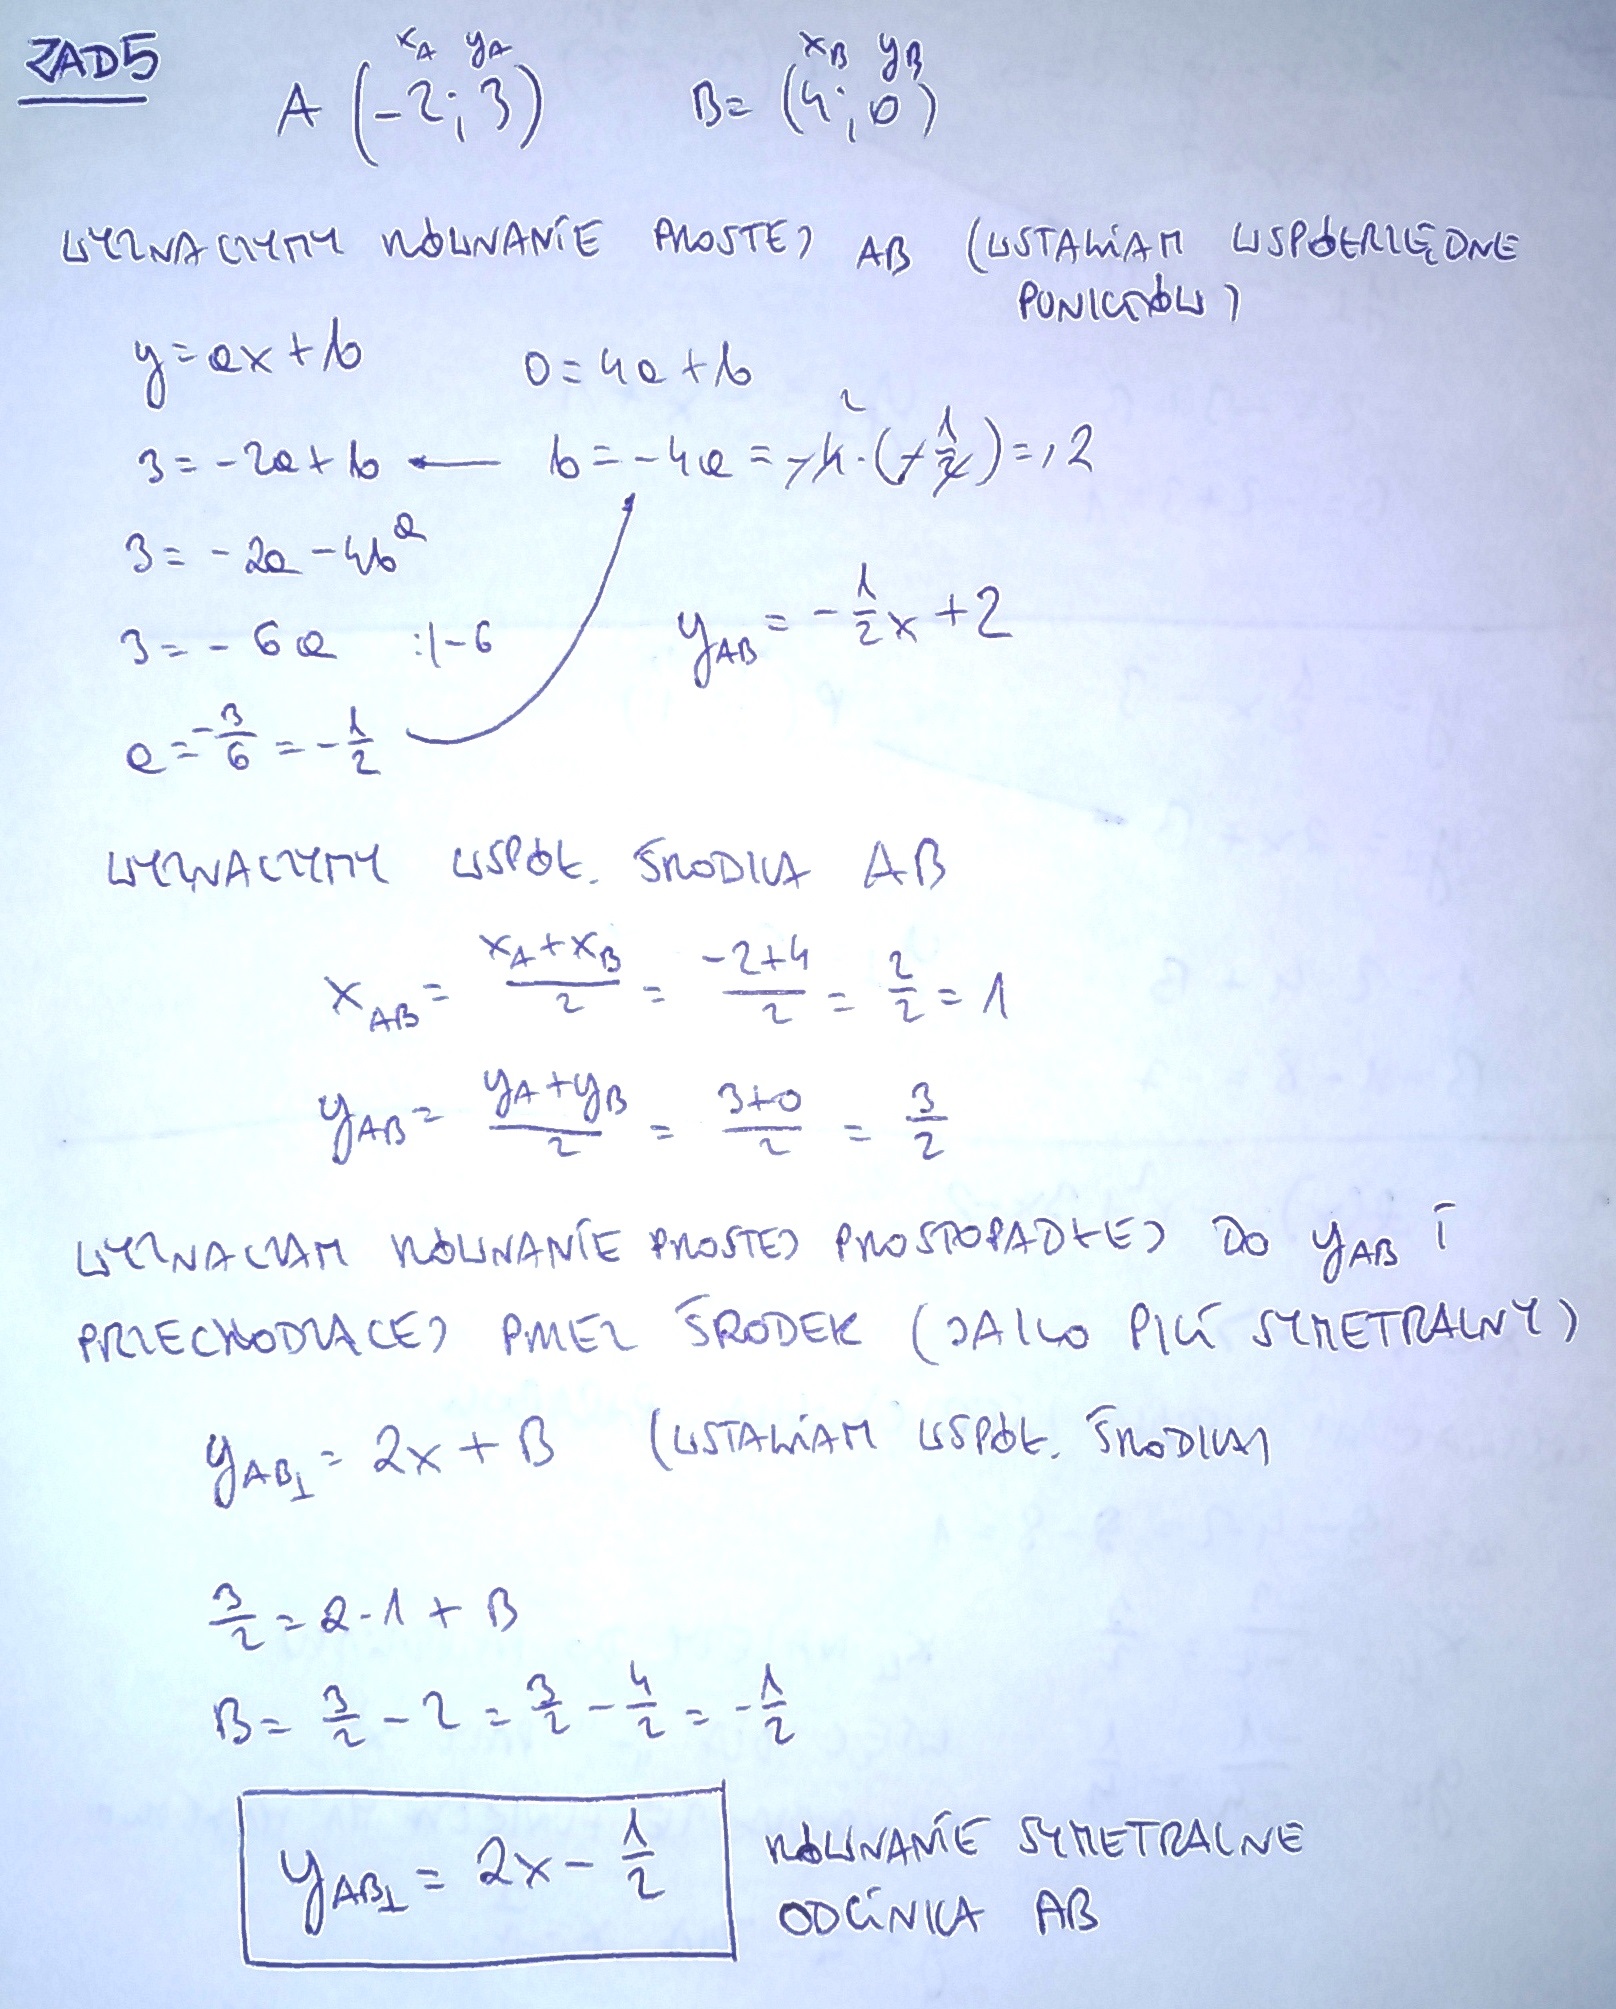 ZAD5
A (-2; 3) B= (4; 0)
x_A y_A x_B y_B
WYZNACZYMY RÓWNANIE PROSTEJ AB (WSTAWIAM WSPÓŁRZĘDNE
PUNKTÓW)
y=ax+b 0=4a+b
3=-2a+b ← b=-4a=-4·(-1/2)=2
3=-2a-4a
3=-6a :|-6 y_AB=-1/2x+2
a=-3/6=-1/2
WYZNACZYMY WSPÓŁ. ŚRODKA AB
x_AB=(x_A+x_B)/2=(-2+4)/2=2/2=1
y_AB=(y_A+y_B)/2=(3+0)/2=3/2
WYZNACZAM RÓWNANIE PROSTEJ PROSTOPADŁEJ DO y_AB I
PRZECHODZĄCEJ PRZEZ ŚRODEK (JAKO SYMETRALNY)
y_AB⊥=2x+B (WSTAWIAM WSPÓŁ. ŚRODKA)
3/2=2·1+B
B=3/2-2=3/2-4/2=-1/2
y_AB⊥=2x-1/2 RÓWNANIE SYMETRALNE
ODCINKA AB